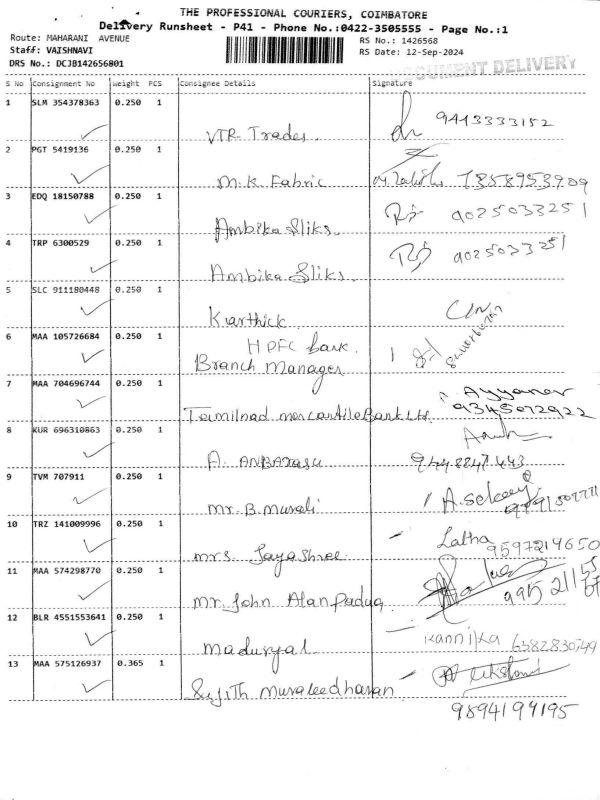 THE PROFESSIONAL COURIERS, COIMBATORE
Delivery Runsheet - P41 - Phone No.:0422-3505555 - Page No.:1
Route: MAHARANI AVENUE RS No.: 1426568
Staff: VAISHNAVI RS Date: 12-Sep-2024
DRS No.: DCJB142656801
DOCUMENT DELIVERY
S No Consignment No Weight PCS Consignee Details Signature
1 SLM 354378363 0.250 1
VTR Trades. 9443333152
2 PGT 5419136 0.250 1
M.K. Fabric 7358953909
3 EDQ 18150788 0.250 1
Ambika Sliks. 9025033251
4 TRP 6300529 0.250 1
Ambika Sliks. 9025033251
5 SLC 911180448 0.250 1
Karthick
6 MAA 105726684 0.250 1
HDFC bank.
Branch Manager
7 MAA 704696744 0.250 1
Ayyanar
Tamilnad mercantile Bank Ltd. 9345072922
8 KUR 696310863 0.250 1
A. ANBARASU 9448847443
9 TVM 707911 0.250 1
Mr. B. Murali
10 TRZ 141009996 0.250 1
Latha
mrs. Jayashree 9597219650
11 MAA 574298770 0.250 1
Mr. John Alan Padua
12 BLR 4551553641 0.250 1
Maduryal Kannika 6382830749
13 MAA 575126937 0.365 1
Sujith Muraleedharan
9894199195